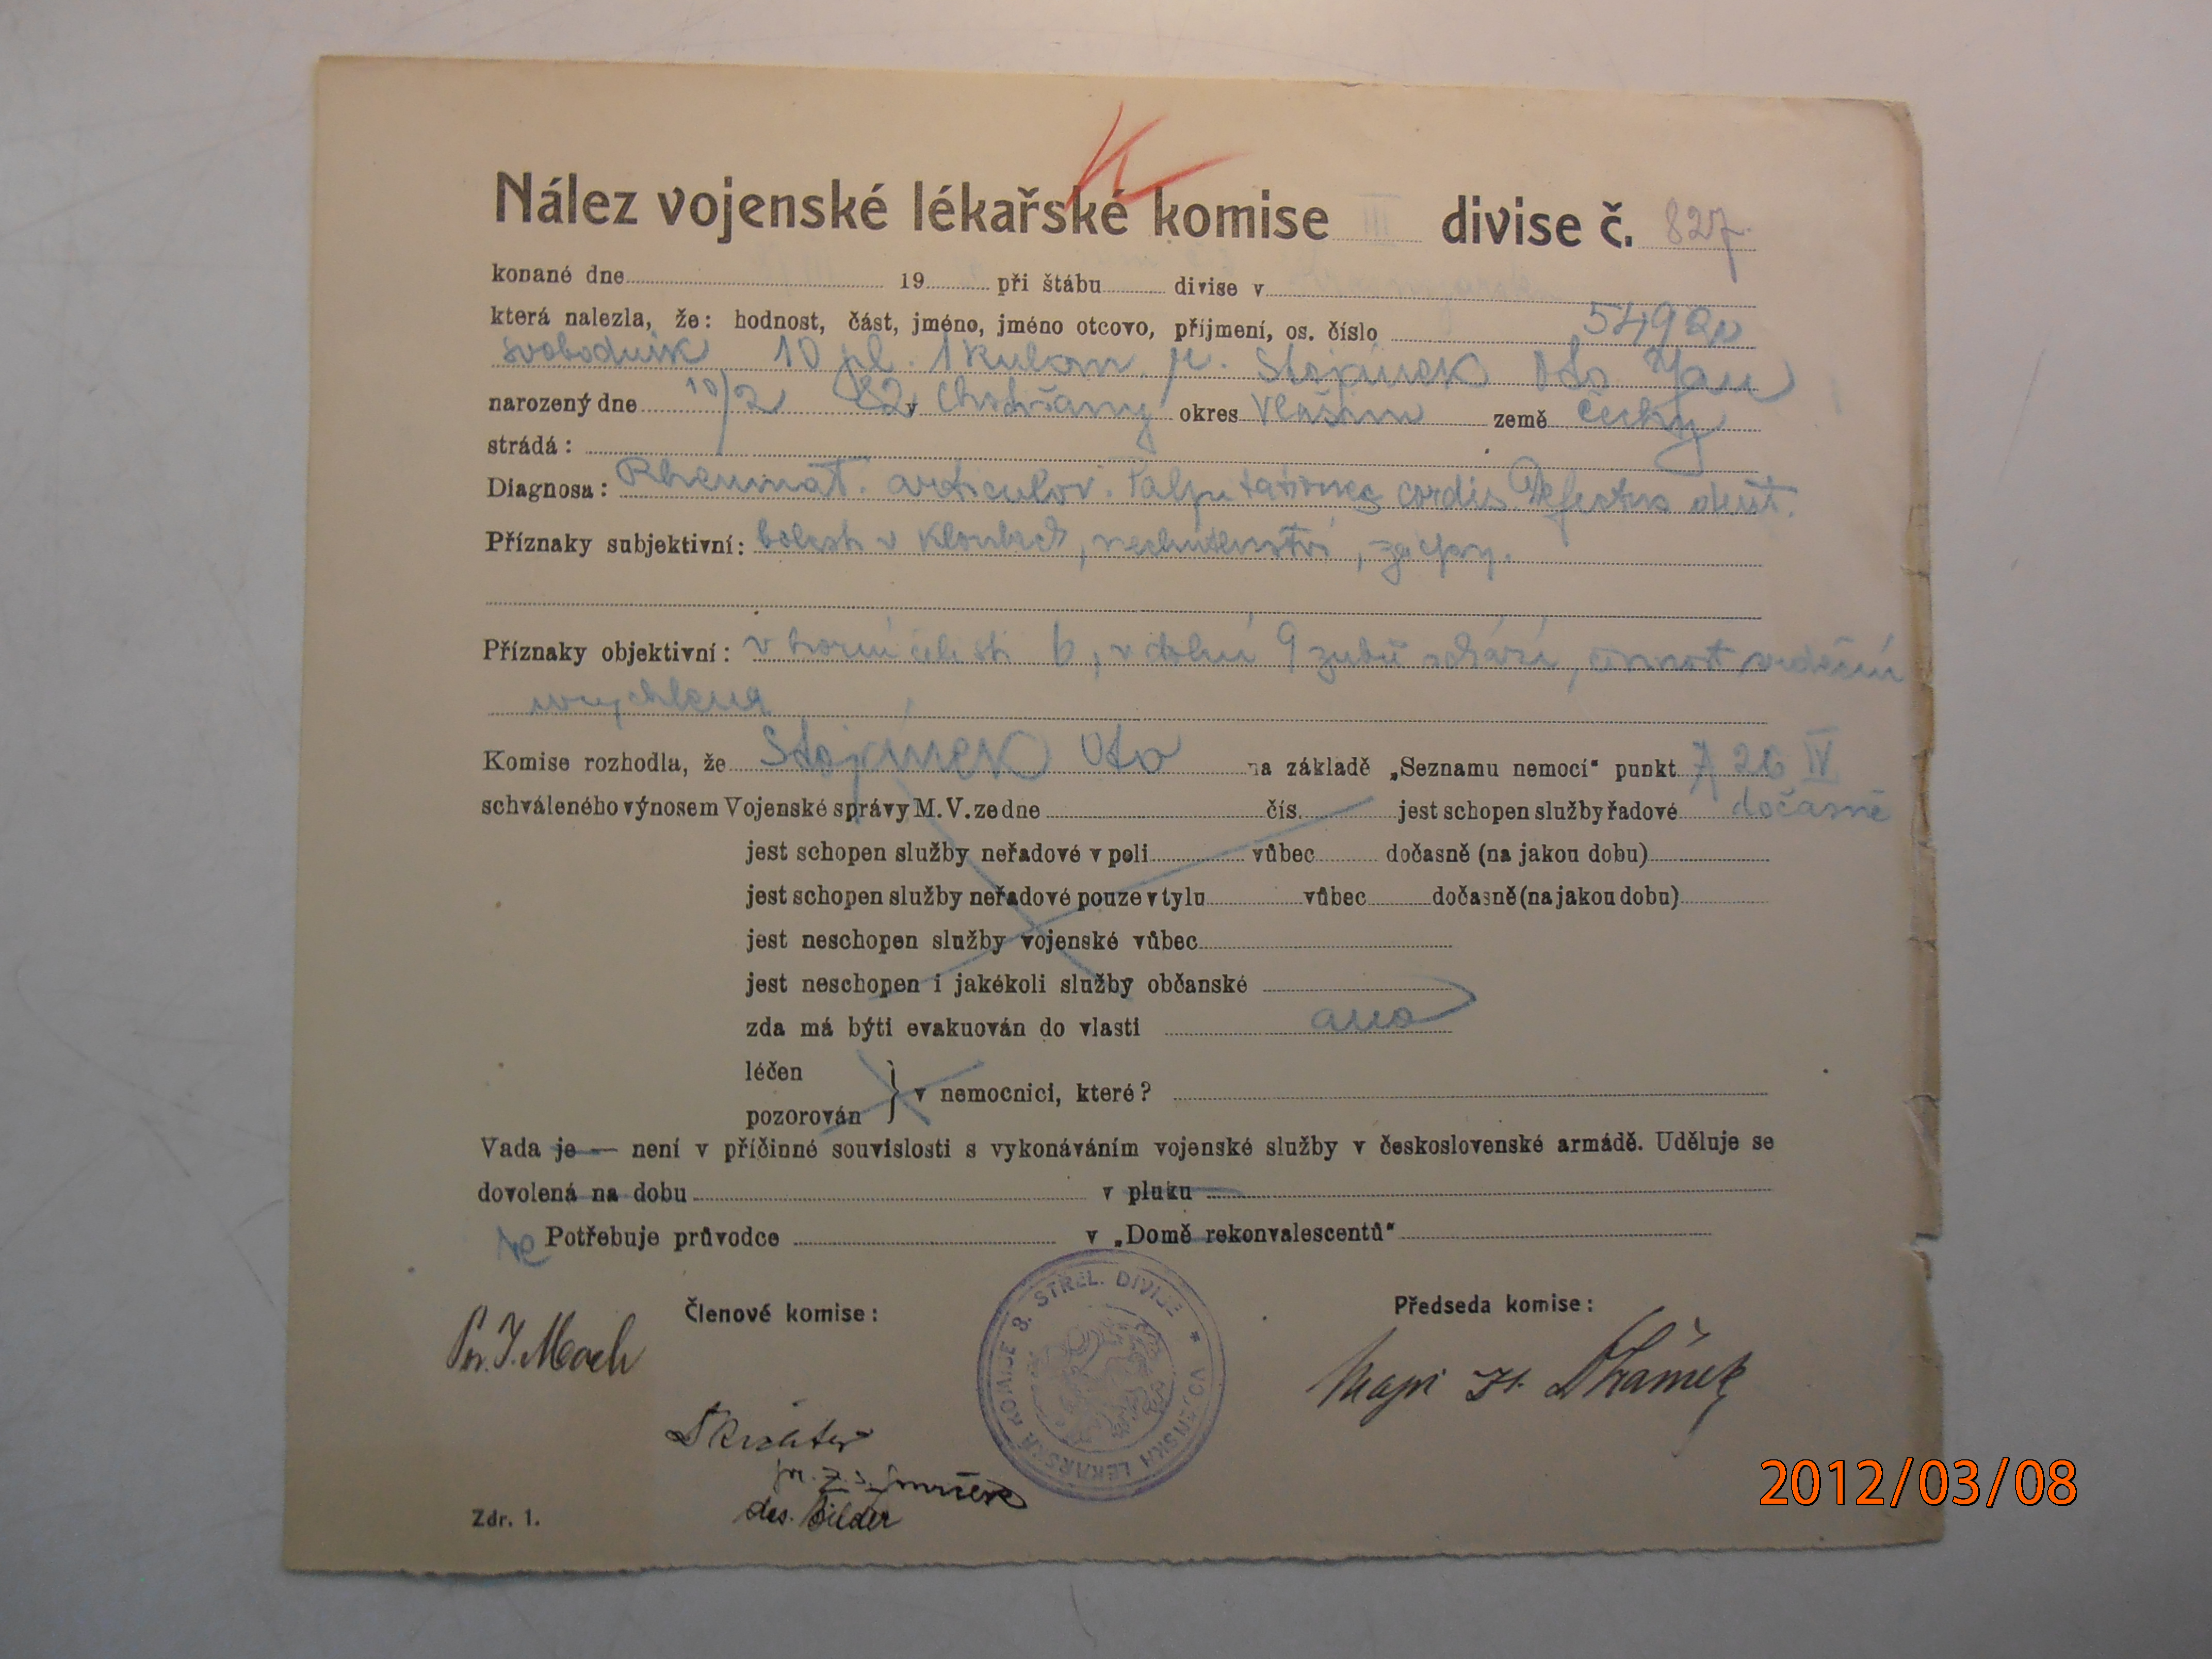 K
Nález vojenské lékařské komise III divise č. 827.
konané dne 19 při štábu divise v
která nalezla, že: hodnost, část, jméno, jméno otcovo, příjmení, os. číslo 54920
svobodník 10 pl. 1 kulom. r. Stojínek Oto Jan
narozený dne 10/2 82 v Chotřany okres Vlašim země Čechy
strádá:
Diagnosa: Rheumat. articulor. Palpitationes cordis. Defectus dent.
Příznaky subjektivní: bolesti v kloubech, nechutenství, zácpy.
Příznaky objektivní: v horní čelisti 6, v dolní 9 zubů schází, činnost srdeční
zrychlena
Komise rozhodla, že Stojínek Oto na základě „Seznamu nemocí“ punkt A 26 IV
schváleného výnosem Vojenské správy M. V. ze dne čís. jest schopen služby řadové dočasně
jest schopen služby neřadové v poli vůbec dočasně (na jakou dobu)
jest schopen služby neřadové pouze v tylu vůbec dočasně (na jakou dobu)
jest neschopen služby vojenské vůbec
jest neschopen i jakékoli služby občanské
zda má býti evakuován do vlasti ano
léčen
pozorován } v nemocnici, které?
Vada je — není v příčinné souvislosti s vykonáváním vojenské služby v československé armádě. Uděluje se
dovolená na dobu v pluku
Ne Potřebuje průvodce v „Domě rekonvalescentů“
Členové komise: Předseda komise:
J. Mach
VOJENSKÁ LÉKAŘSKÁ KOMISE 3. STŘEL. DIVISE *
des. Bilder
Zdr. 1.
2012/03/08